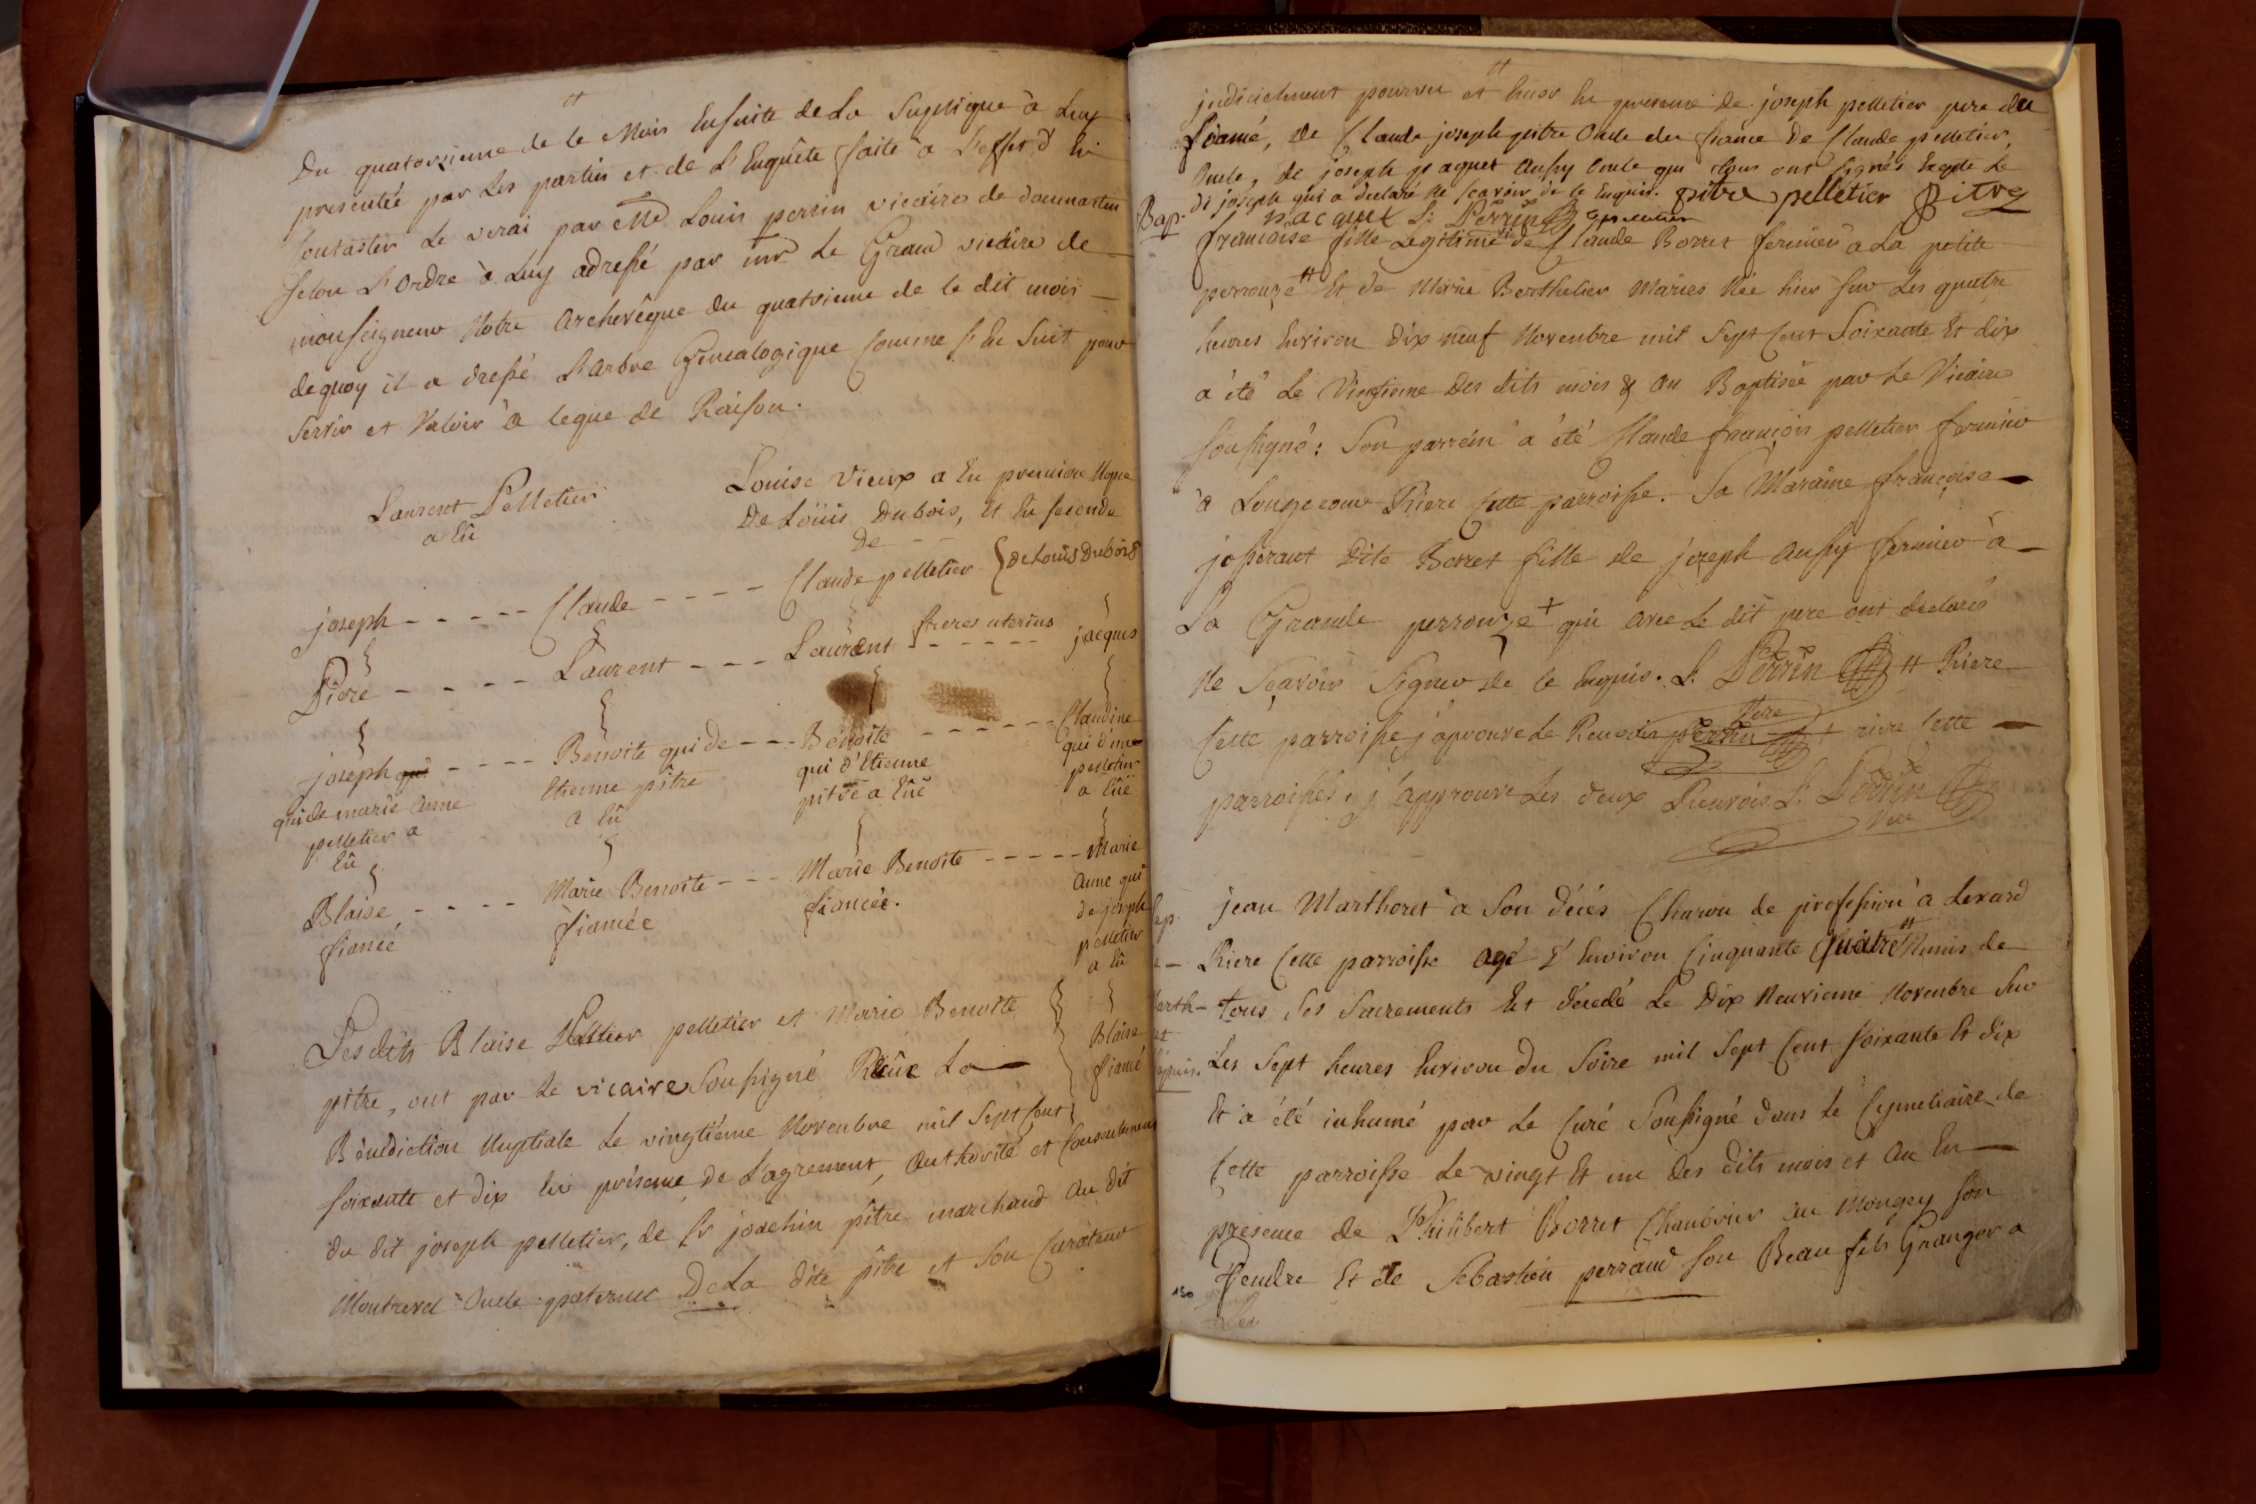 tt
Du quatorsieme de le Mois Ensuitte de La Suplique à Luy
presentée par Les parties et de L'Enquête faite à L'effet d'En
Contaster Le verai par Mre Louis perrin vicaire de dommartin
selon L'Ordre à Luy adressé par mr Le Grand vicaire de
monseigneur Notre Archevêque du quatsieme de le dit mois —
de quoy il a dressé L'Arbre Genealogique Comme s'En Suit pour
Servir et Valoir à le que de Raison.
Laurent Pelletier
a Eû
Louise Vieux a Eu premiere Nopce
De Loüis Dubois, Et En seconde
De
joseph - - - - - Claude - - - - Claude pelletier { de Loüis Dubois
freres uterins
Piere - - - - - Laurent - - - Laurent - - - - - jacques
joseph qui - - - - Benoite qui de - - - Benoite - - - - - - Claudine
qui de marie Anne
pelletier a
Eû
Etienne pître
a Eû
qui d'Etienne
pitre a Eûe
qui d'une
pelletier
a Eûe
Blaise - - - - Marie Benoite - - - Marie Benoite - - - - - Marie
fiancé
fiancée
fiancée.
Anne qui
de joseph
pelletier
a Eû
Blaise
fiancé
Lesdits Blaise pelletier et Marie Benoite
pitre, ont par Le vicaire Soussigné Reçûe La —
Bénédiction Nuptiale Le vingtiéme Novembre mil Sept Cent
soixante et dix En présence de L'agrement, Authorité et Consentement
du dit joseph pelletier, de Sr joachin pître marchand Au dit
Montrevel Oncle paternel De La dite pître et Son Curateur
tt
judicielement pourvu et hier En presence de joseph pelletier pere du
fiancé, de Claude joseph pitre Oncle du fiancé De Claude pelletier,
Oncle, De joseph pacquet Aussy Oncle qui tous ont signés Excepté Le
Dt joseph qui a declaré ne scavoir de le Enquis. pitre pelletier Pitre
pacquet L: Perrin Cpelletier
Bap.
francoise fille Legitime de Claude Borret fermier à La petite
perrouze tt Et de Marie Berthelier Mariés Née hier sur Les quatre
heures Environ Dix neuf Novembre mil Sept Cent Soixante Et dix
a été Le Vingtieme Des dits mois & An Baptisée par Le Vicaire
soussigné: Son parrein a été Claude françois pelletier fermier
à Longecour Riere Cette parroisse. Sa Maraine françoise —
josserant Dite Borret fille de joseph Aussy fermier à —
La Grande perrouze + qui avec Le dit pere ont declarés
Ne Sçavoir Signer de le Enquis. L: Perrin tt Riere
Cette parroisse j'aprouve Le Renvoi Perrin Vicre + riere Cette —
parroisse, j'approuve Les deux Renvois L: Perrin
Vicre
jean Marthoret à Son décés Charon de profession à Lexard
Riere Cette parroisse Agé d'Environ Cinquante Quatre tt Munis de
tous Ses Sacrements Est décedé Le Dix Neuvieme Novembre Sur
Les Sept heures Environ du Soire mil Sept Cent Soixante Et dix
Et a été inhumé par Le Curé Soussigné dans Le Cymetiaire de
Cette parroisse Le vingt Et un des dits mois et An En —
presence de Philibert Borret Chanvrier au Mongey son
Gendre Et de Sebastien perraud son Beau fils Granger a
150